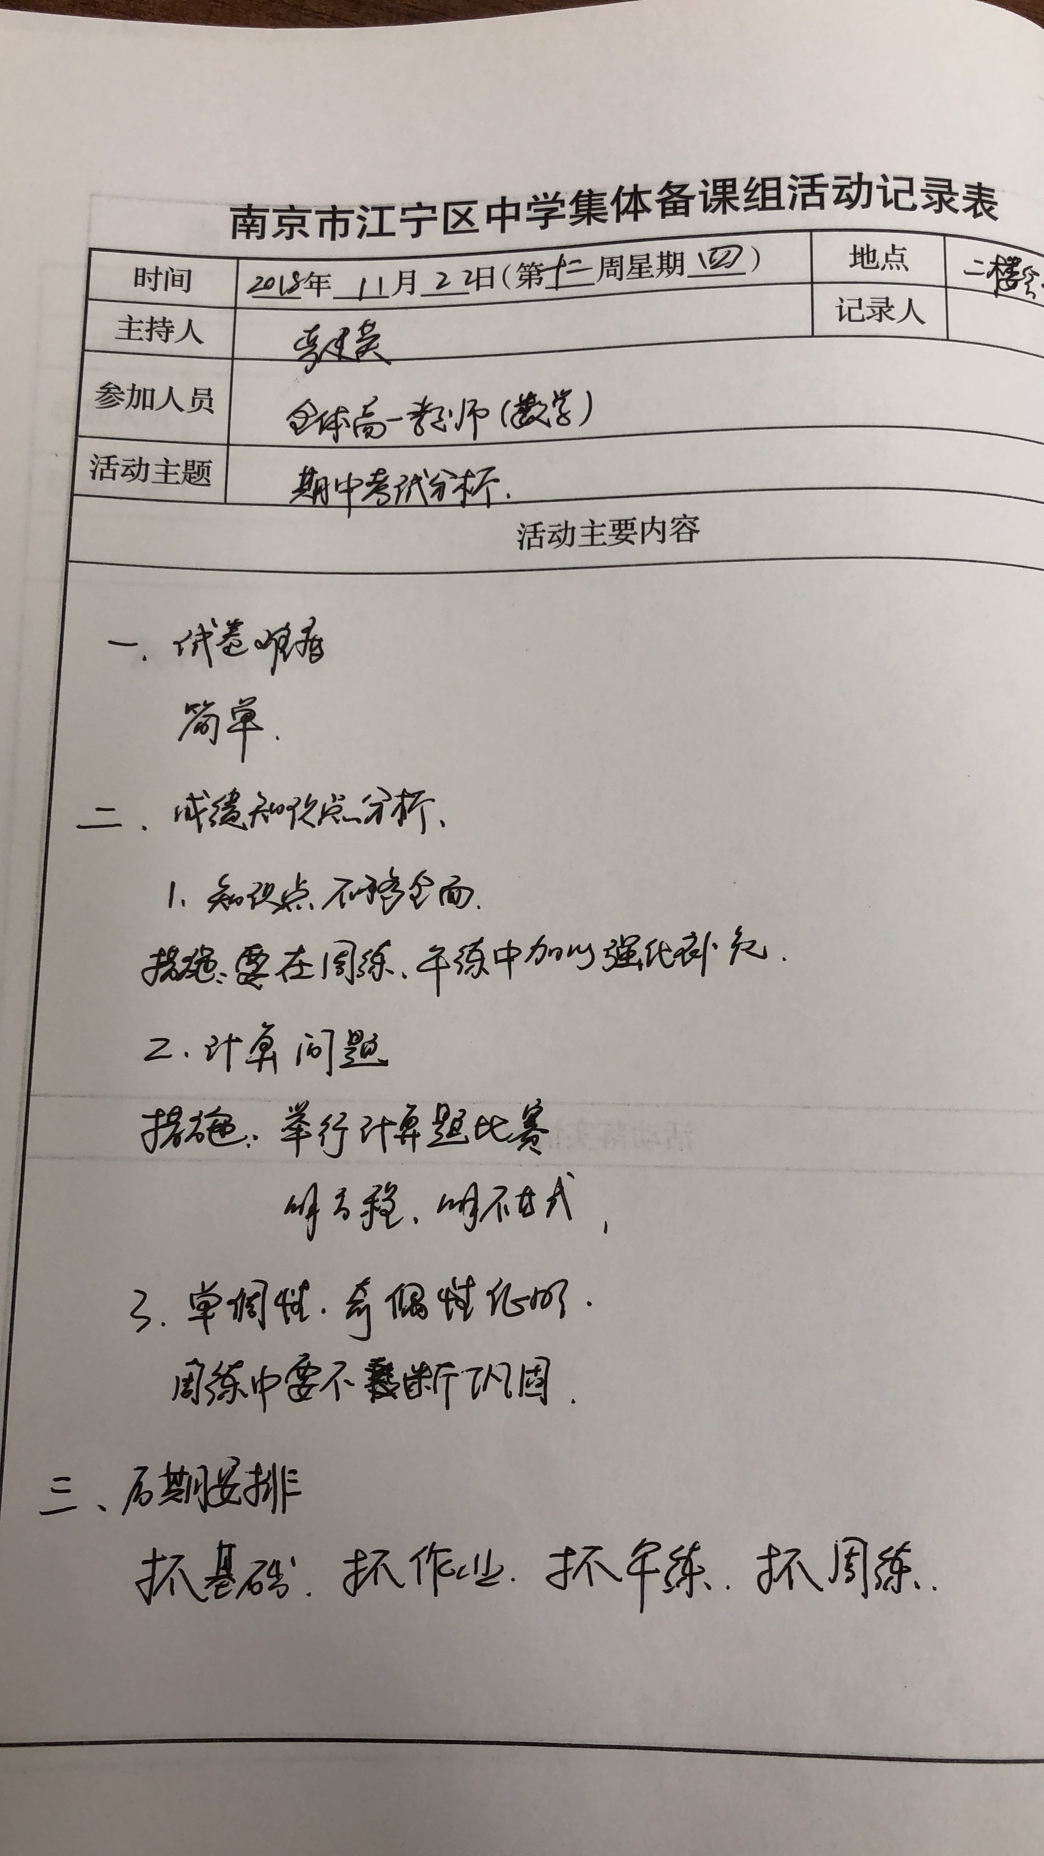 南京市江宁区中学集体备课组活动记录表
时间 2018年 11月22日(第十二周星期四) 地点 二楼会
主持人 李建英 记录人
参加人员 全体高一老师(数学)
活动主题 期中考试分析.
活动主要内容
一、试卷难度
简单.
二、成绩知识点分析、
1、知识点不够全面.
措施:要在周练、午练中加以强化补充.
2、计算问题
措施:举行计算题比赛
解方程、解不等式,
3.单调性.奇偶性证明.
周练中要不断巩固.
三、后期安排
抓基础.抓作业.抓午练.抓周练.